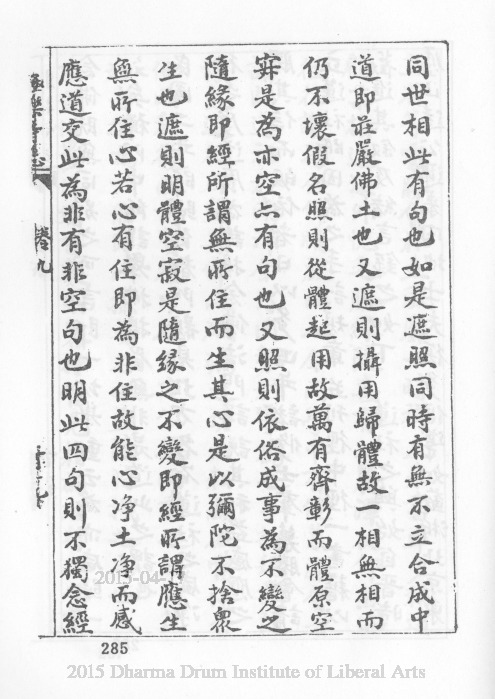 同世相此有句也如是遮照同時有無不立合成中
道即莊嚴佛土也又遮則攝用歸體故一相無相而
仍不壞假名照則從體起用故萬有齊彰而體原空
寂是為亦空亦有句也又照則依俗成事為不變之
隨緣即經所謂無所住而生其心是以彌陀不捨眾
生也遮則明體空寂是隨緣之不變即經所謂應生
無所住心若心有住即為非住故能心净土净而感
應道交此為非有非空句也明此四句則不獨念經
卷九
285
2015 Dharma Drum Institute of Liberal Arts